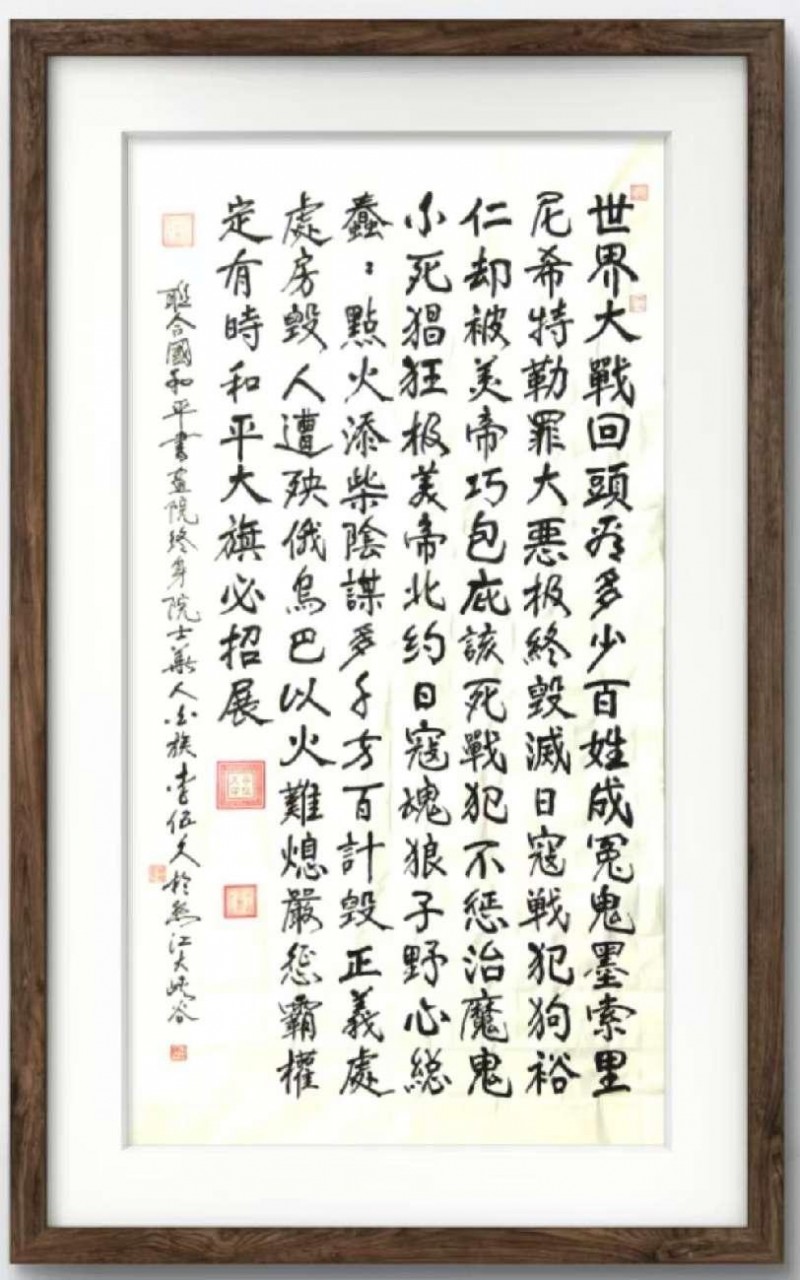 世界大戰回頭看多少百姓成冤鬼墨索里
尼希特勒罪大悪极終毀滅日寇戦犯狗裕
仁却被美帝巧包庇該死戰犯不惩治魔鬼
不死猖狂极美帝北约日寇魂狼子野心総
蠢蠢點火添柴陰謀多千方百計毀正義處
處房毀人遭殃俄烏巴以火難熄嚴惩霸權
定有時和平大旗必招展
聯合國和平書画院终身院士華人白族李伍久於怒江大峡谷